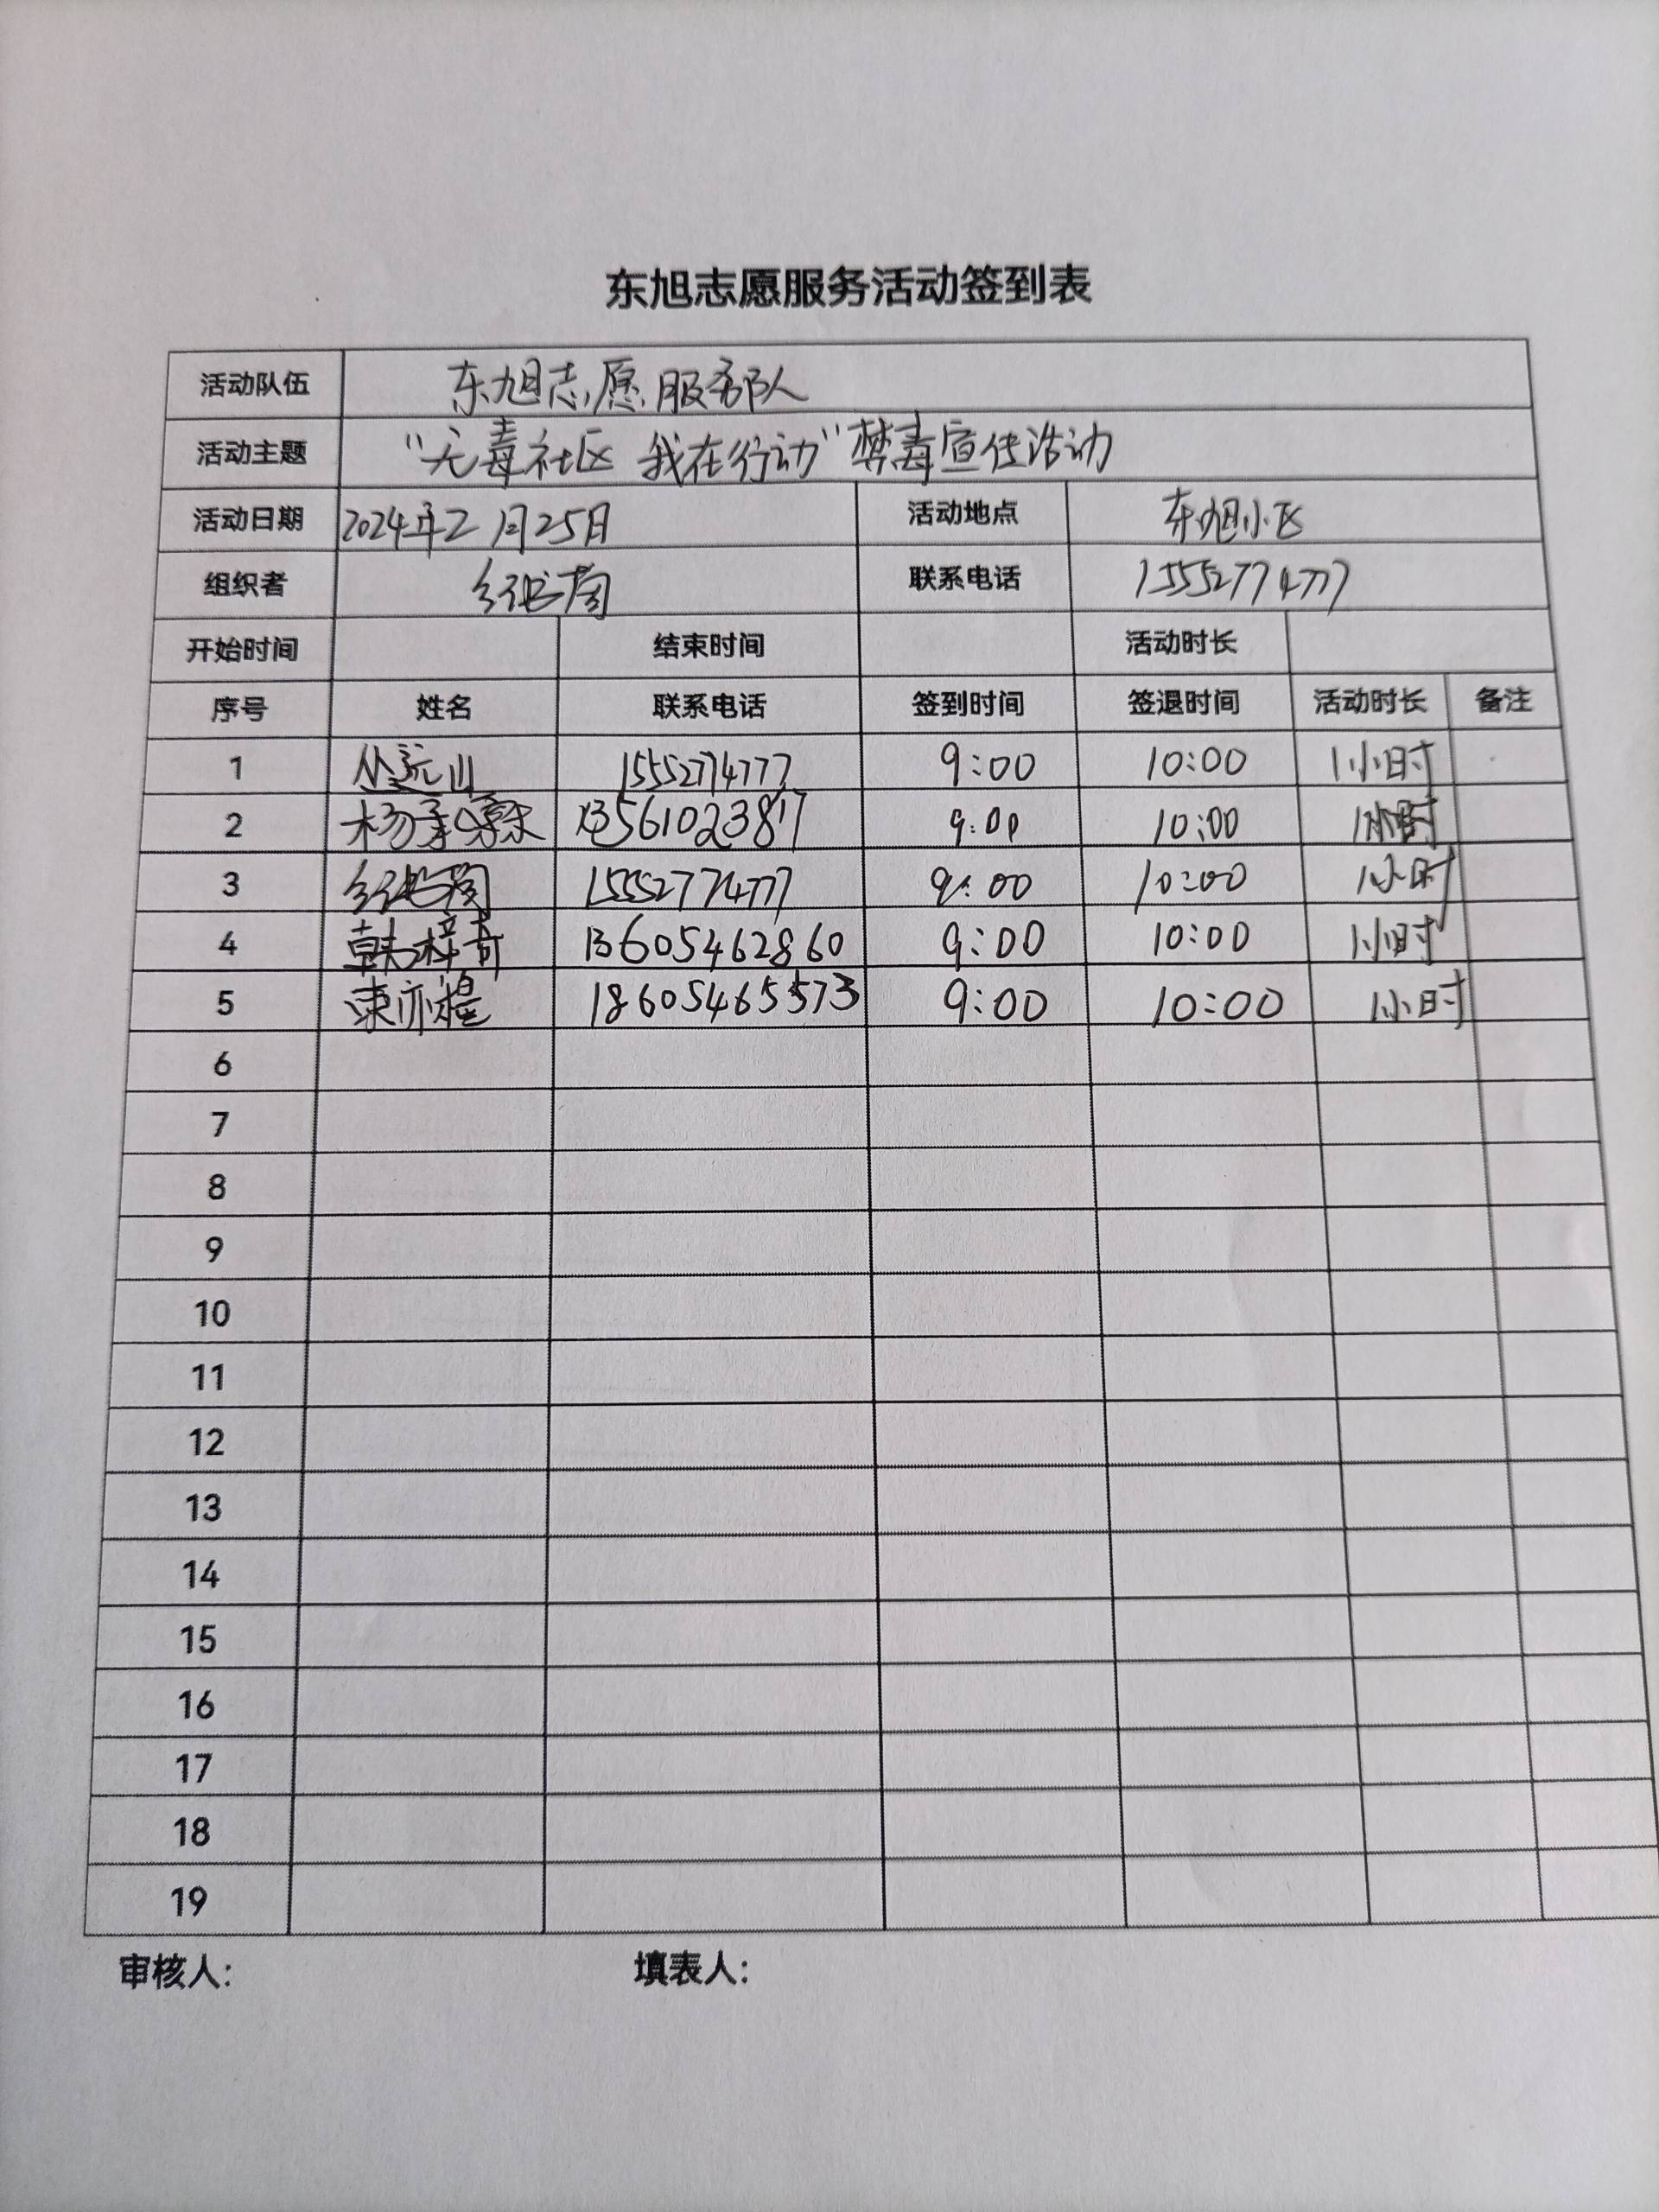 东旭志愿服务活动签到表
活动队伍 东旭志愿服务部队
活动主题 “无毒社区 我在行动”禁毒宣传活动
活动日期 2024年2月25日 活动地点 东旭小区
组织者 联系电话 15552774777
开始时间 结束时间 活动时长
序号 姓名 联系电话 签到时间 签退时间 活动时长 备注
1 丛远山 15552774777 9:00 10:00 1小时
2 杨 13561023817 9:00 10:00 1小时
3 15552774777 9:00 10:00 1小时
4 韩梓奇 13605462860 9:00 10:00 1小时
5 亦煜 18605465573 9:00 10:00 1小时
6
7
8
9
10
11
12
13
14
15
16
17
18
19
审核人: 填表人: